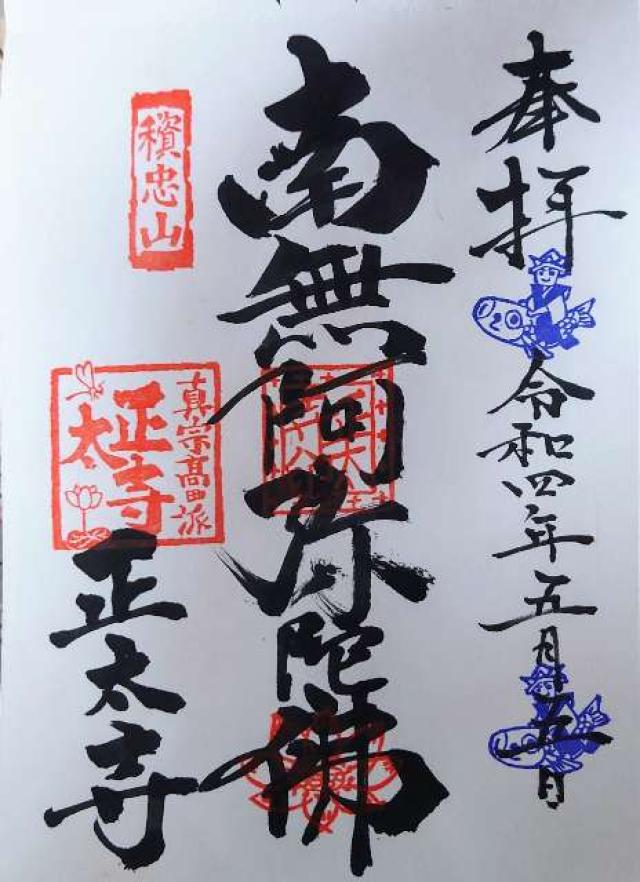 奉拝
令和四年五月五日
南無阿弥陀佛
穳忠山
真宗高田派
正太寺
正太寺